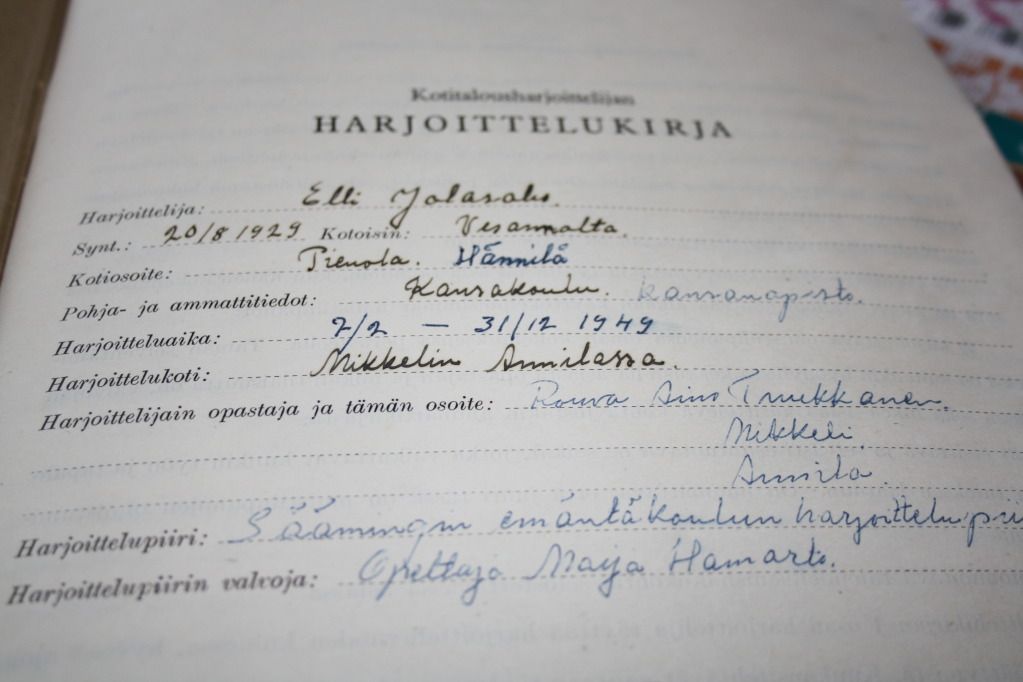 Kotitalousharjoittelijan
HARJOITTELUKIRJA
Harjoittelija: Elli Jalasaho.
Synt.: 20/8 1929 Kotoisin: Vesannolta.
Kotiosoite: Tienola. Hännilä
Pohja- ja ammattitiedot: Kansakoulu. Kansanopisto.
Harjoitteluaika: 7/2 — 31/12 1949
Harjoittelukoti: Mikkelin Annilassa.
Harjoittelijain opastaja ja tämän osoite: Rouva Aino Truhkanen.
Mikkeli.
Annila.
Harjoittelupiiri: Säämingin emäntäkoulun harjoittelupii
Harjoittelupiirin valvoja: Opettaja Maija Hamarto.